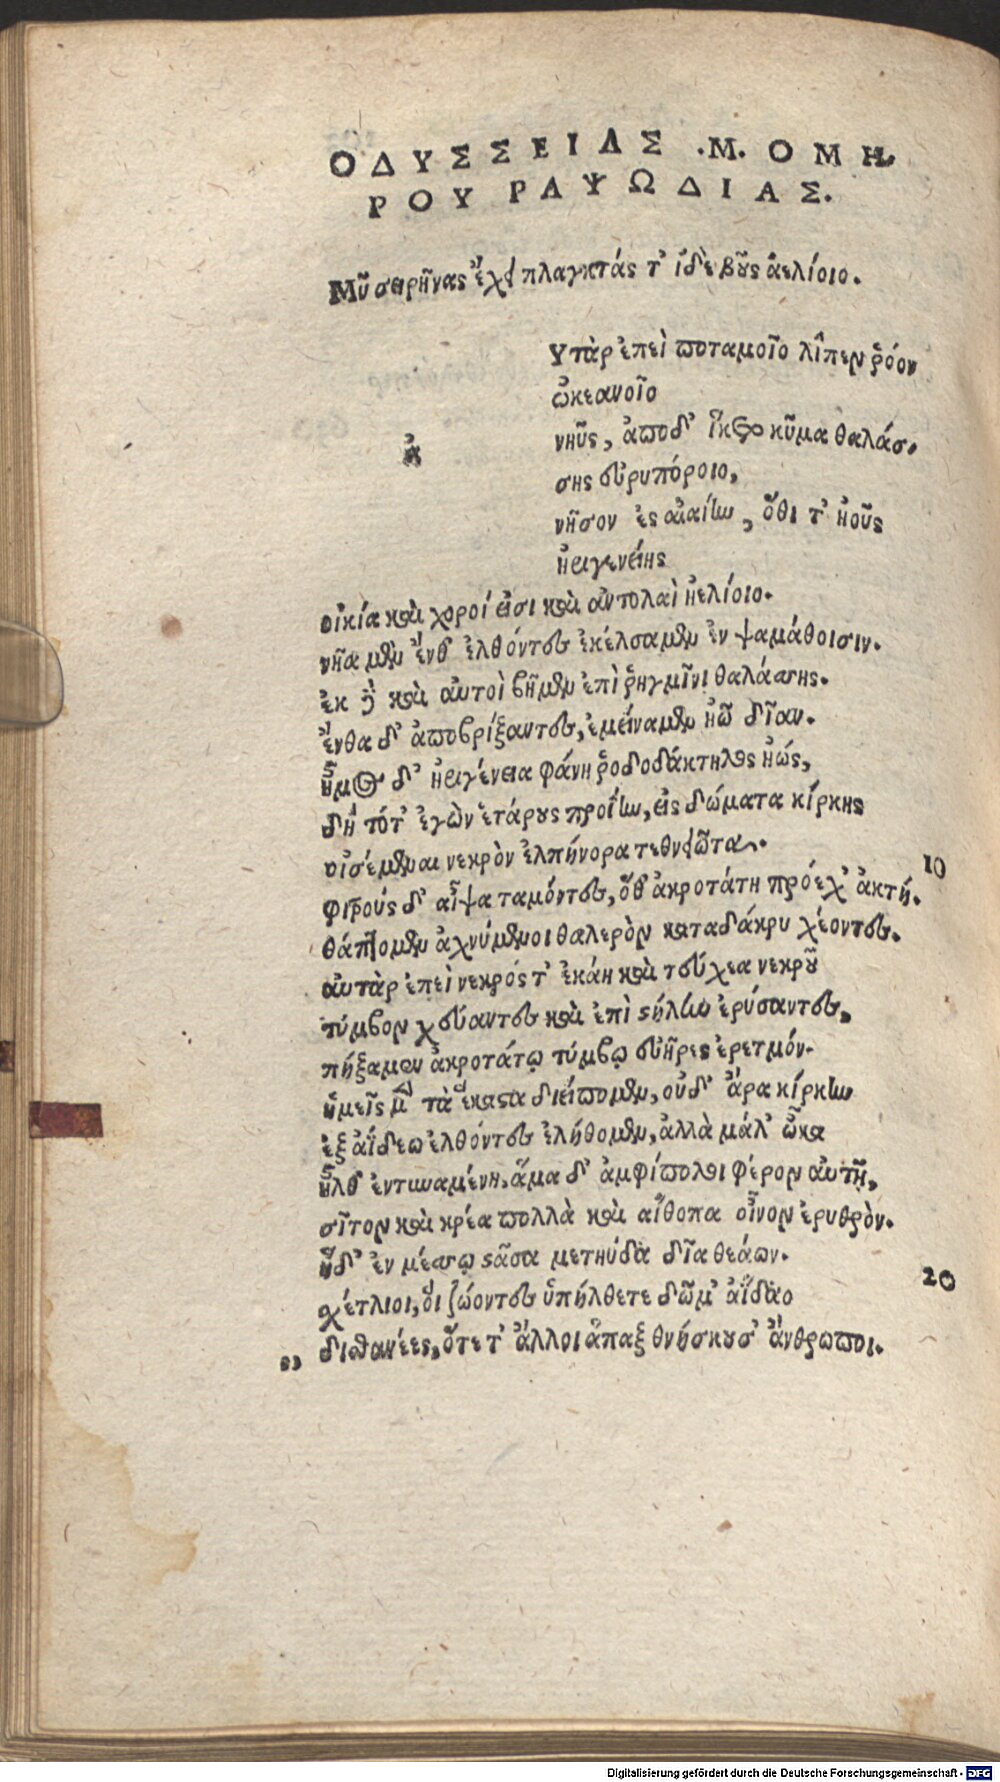 ΟΔΥΣΣΕΙΑΣ .Μ. ΟΜΗ
ΡΟΥ ΡΑΨΩΔΙΑΣ.
Μῦ σειρῆνας ἔχει πλαγκτάς τ' ἰδὲ βοῦς ἀελίοιο.
Υτὰρ ἐπεὶ ποταμοῖο λίπεν ῥόον
ὠκεανοῖο
νηῦς, ἀπὸ δ' ἵκετο κῦμα θαλάσ-
ἀ
σης εὐρυπόροιο,
νῆσον ἐς αἰαίην, ὅθι τ' ἠοῦς
ἠριγενείης
οἰκία καὶ χοροί εἰσι καὶ ἀντολαὶ ἠελίοιο.
νῆα μὲν ἔνθ' ἐλθόντες ἐκέλσαμεν ἐν ψαμάθοισιν.
ἐκ δὲ καὶ αὐτοὶ βῆμεν ἐπὶ ῥηγμῖνι θαλάσσης.
ἔνθα δ' ἀποβρίξαντες, ἐμείναμεν ἠῶ δῖαν.
ἦμος δ' ἠριγένεια φάνη ῥοδοδάκτυλος ἠώς,
δὴ τότ' ἐγὼν ἑτάρους προΐην, εἰς δώματα κίρκης
οἰσέμεναι νεκρὸν ἐλπήνορα τεθνειῶτα. 10
φιτροὺς δ' αἶψα ταμόντες, ὅθ' ἀκροτάτη πρόεχ' ἀκτή.
θάπτομεν ἀχνύμενοι θαλερὸν καταδάκρυ χέοντες.
αὐτὰρ ἐπεὶ νεκρός τ' ἐκάη καὶ τεύχεα νεκροῦ
τύμβον χεύαντες καὶ ἐπὶ στήλην ἐρύσαντες,
πήξαμεν ἀκροτάτῳ τύμβῳ εὐῆρες ἐρετμόν.
ἡμεῖς μὲν τὰ ἕκαστα διείπομεν, οὐδ' ἄρα κίρκην
ἐξ ἀΐδεω ἐλθόντες ἐλήθομεν, ἀλλὰ μάλ' ὦκα
ἦλθ' ἐντυναμένη. ἅμα δ' ἀμφίπολοι φέρον αὐτῇ,
σῖτον καὶ κρέα πολλὰ καὶ αἴθοπα οἶνον ἐρυθρὸν.
ἡ δ' ἐν μέσσῳ στᾶσα μετηύδα δῖα θεάων.
σχέτλιοι, οἳ ζώοντες ὑπήλθετε δῶμ' ἀΐδαο 20
δισθανέες, ὅτε τ' ἄλλοι ἅπαξ θνήσκουσ' ἄνθρωποι.
Digitalisierung gefördert durch die Deutsche Forschungsgemeinschaft - DFG